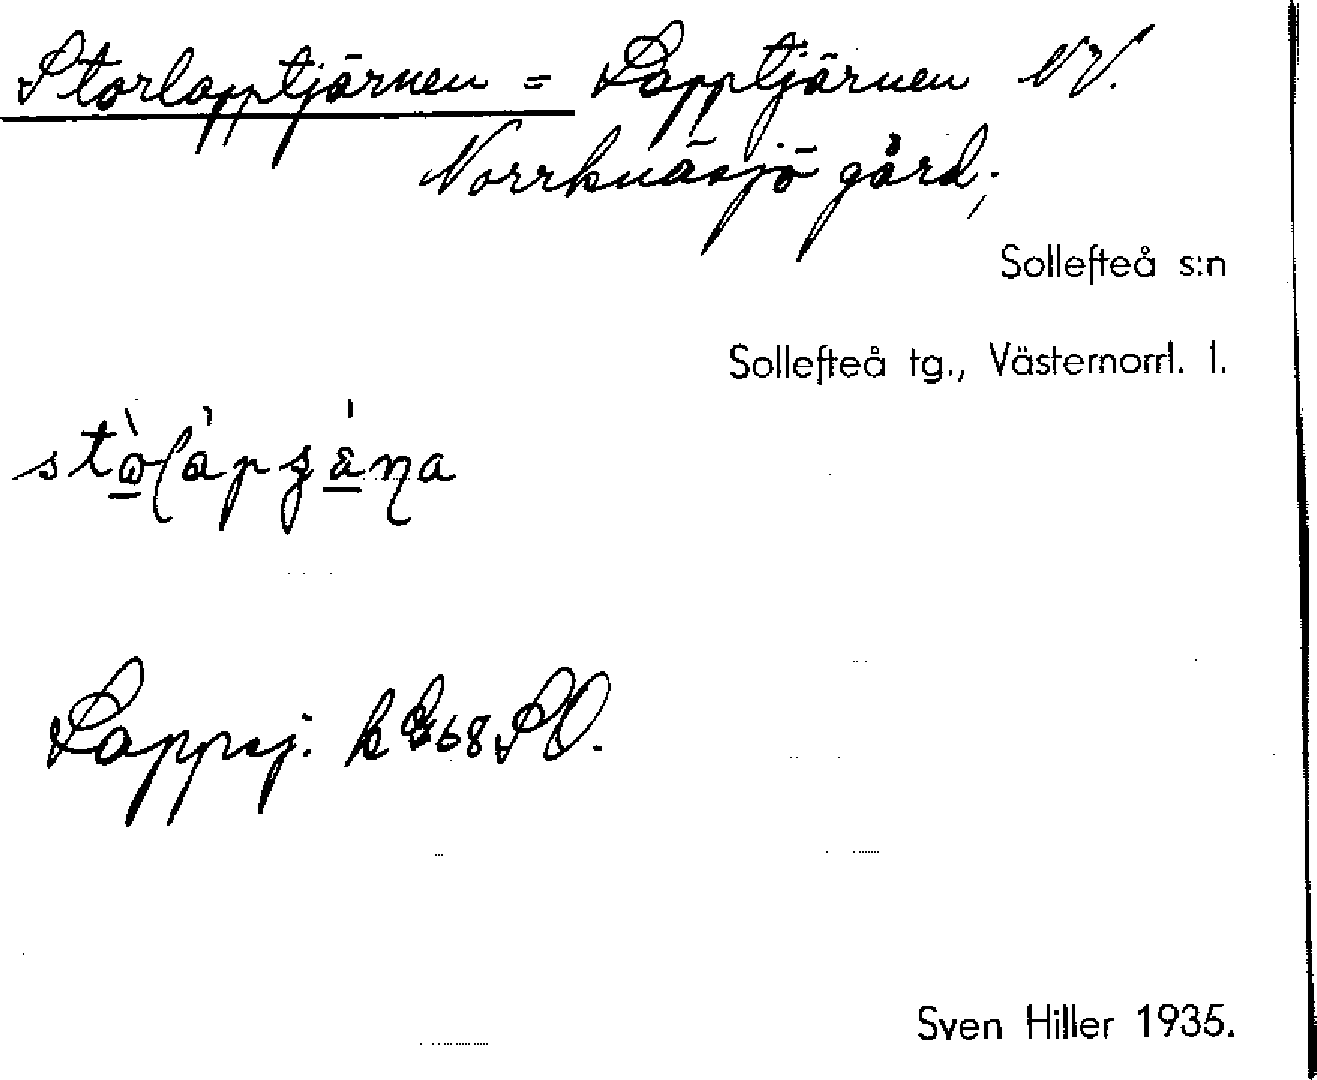 Storlapptjärnen = Lapptjärnen NV.
Norrknäsjö gård;
Sollefteå s:n
Sollefteå tg., Västernorrl. l.
Lappsj. k 68 SO.
Sven Hiller 1935.